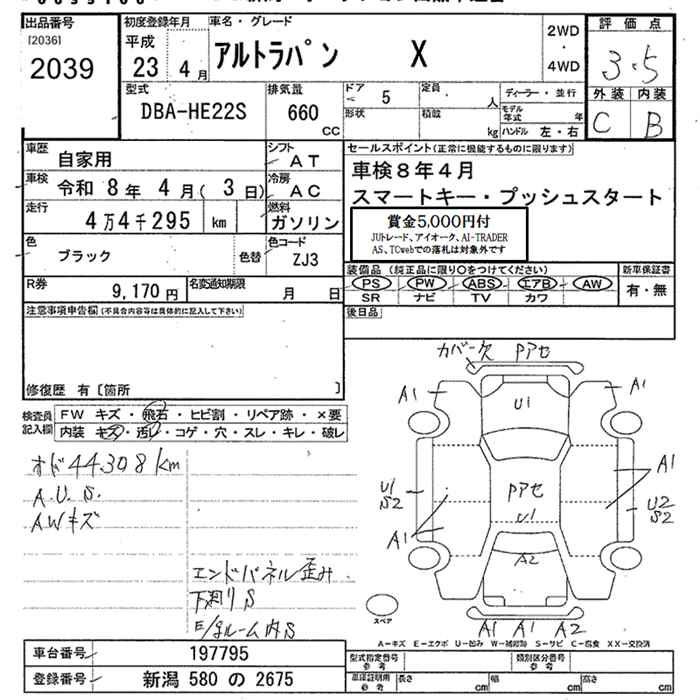 出品番号
[2036]
2039
初度登録年月
平成
23 4 月
車名・グレード
アルトラパン X
2WD
・
4WD
評価点
3.5
外装 内装
C B
型式
DBA-HE22S
排気量
660
CC
ドア 5
形状
定員 人
積載 kg
ディーラー・並行
モデル年式 年
ハンドル 左・右
車歴
自家用
シフト
AT
車検
令和 8年 4月( 3日)
冷房
AC
走行
4万4千295 km
燃料
ガソリン
色
ブラック
色替
色コード
ZJ3
R券
9,170円
名変通知期限
月 日
セールスポイント(正常に機能するものに限ります)
車検8年4月
スマートキー・プッシュスタート
賞金5,000円付
JUトレード、アイオーク、AI-TRADER
AS、TCwebでの落札は対象外です
装備品(純正品に限り○をつけてください)
PS PW ABS エアB AW
SR ナビ TV カワ
新車保証書
有・無
後日品
注意事項申告欄(不具合内容等は具体的に記入して下さい)
修復歴 有[箇所 ]
検査員記入欄
FW キズ・飛石・ヒビ割・リペア跡・×要
内装 キズ・汚レ・コゲ・穴・スレ・キレ・破レ
オド44308km
A.U.S.
AWキズ
エンドパネル歪み
下廻りS
E/gルーム内S
カバー欠 Pアセ
A1 A1
U1
A1
U1
S2
Pアセ
U1
U2
S2
A1
A2
スペア
A1 A1 A2
A-キズ E-エクボ U-凹み W-補修跡 S-サビ C-腐食 XX-交換済
車台番号
197795
登録番号
新潟 580 の 2675
型式指定番号
参考
類別区分番号
参考
車庫証明用
参考
長さ cm
幅 cm
高さ cm